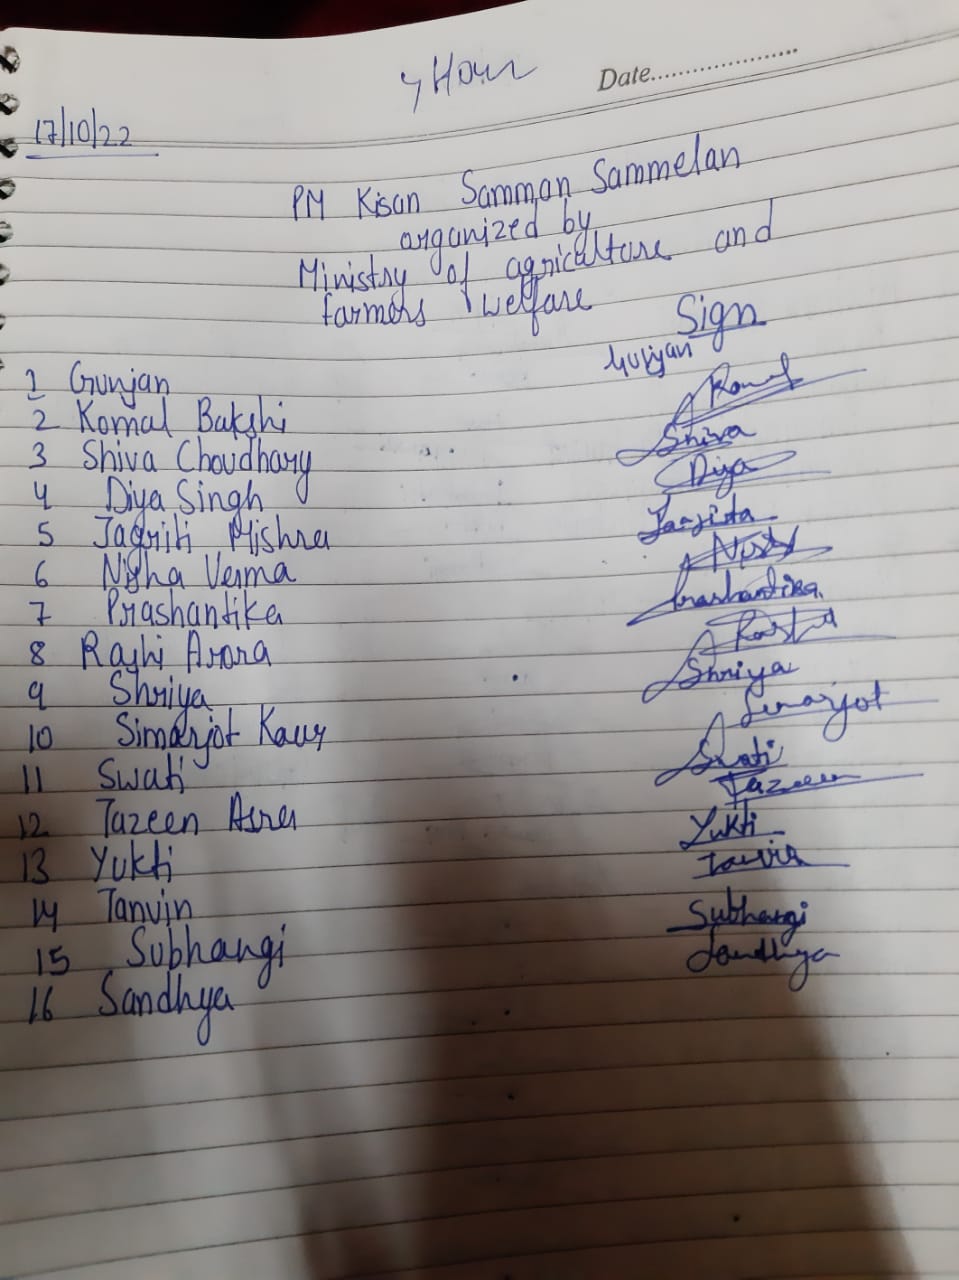 Hour
Date....................
17/10/22
PM Kisan Samman Sammelan
organized by
Ministry of agriculture and
farmers welfare
Sign
1 Gunjan Gunjan
2 Komal Bakshi Komal
3 Shiva Choudhary Shiva
4 Diya Singh Diya
5 Jagriti Mishra
6 Nisha Verma
7 Prashantika Prashantika
8 Rashi Arora
9 Shriya Shriya
10 Simarjot Kaur Simarjot
11 Swati Swati
12 Tazeen Asra Tazeen
13 Yukti Yukti
14 Tanvin
15 Subhangi Subhangi
16 Sandhya Sandhya